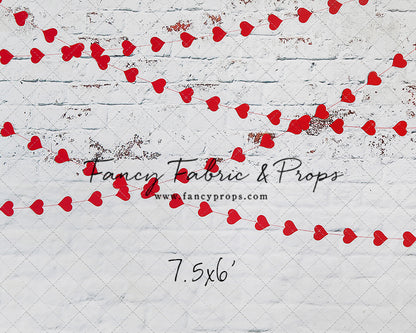 Fancy Fabric & Props
www.fancyprops.com
7.5x6'